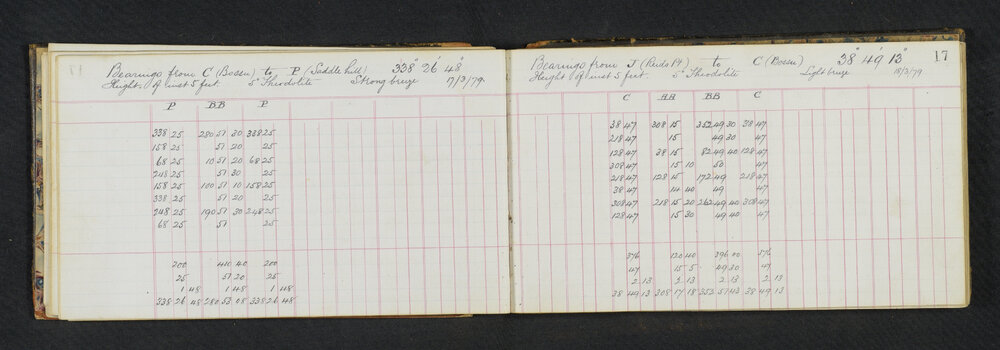 Bearings from C (Bossu) to P (Saddle hill) 338° 26' 48"
Height of inst 5 feet. 5" Theodolite Strong breeze 17/3/79.
P BB P
338 25 280 51 30 338 25
158 25 51 20 25
68 25 10 51 20 68 25
248 25 51 30 25
158 25 100 51 10 158 25
338 25 51 20 25
248 25 190 51 30 248 25
68 25 51 25
200 410 40 200
25 51 20 25
1 48 1 48 1 48
338 26 48 280 53 08 338 26 48
17
Bearings from J (Reids 14) to C (Bossu) 38° 49' 13"
Height of inst 5 feet. 5" Theodolite Light breeze 18/3/79
C AA BB C
38 47 308 15 352 49 30 38 47
218 47 15 49 30 47
128 47 38 15 82 49 40 128 47
308 47 15 10 50 47
218 47 128 15 172 49 218 47
38 47 14 40 49 47
308 47 218 15 20 262 49 40 308 47
128 47 15 30 49 40 47
376 120 40 396 00 376
47 15 5 49 30 47
2 13 2 13 2 13 2 13
38 49 13 308 17 18 352 51 43 38 49 13